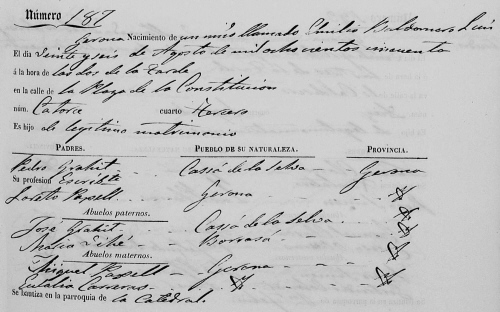 Número 187
Gerona Nacimiento de un niño llamado Emilio Baldomero Luis
El dia veinte y seis de Agosto de mil ochocientos cincuenta
á la hora de las dos de la tarde
en la calle de la Plaza de la Constitucion
núm. Catorce cuarto tercero
Es hijo de legitimo matrimonio
PADRES. PUEBLO DE SU NATURALEZA. PROVINCIA.
Pedro Grahit - Cassá de la Selva - Gerona
Su profesion Escribte
Loreto Papell - Gerona - Id
Abuelos paternos.
José Grahit - Cassá de la Selva - Id
Maria - Borrasá - Id
Abuelos maternos.
Miguel Papell - Gerona - Id
Eulalia Carreras - Id - Id
Se bautiza en la parroquia de la Catedral